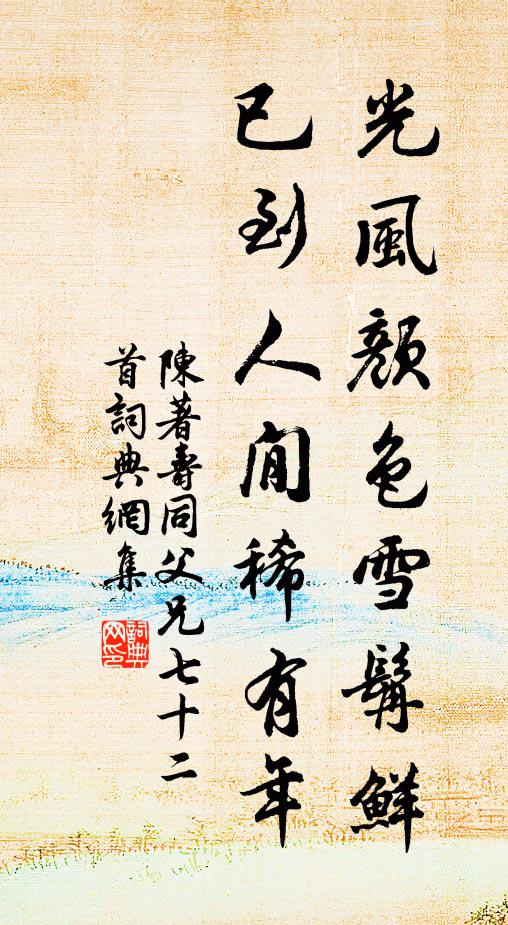 光風顏色雪鬢鮮
已到人間稀有年
陳著壽同父兄七十二
首詞典網集
詞典
网印